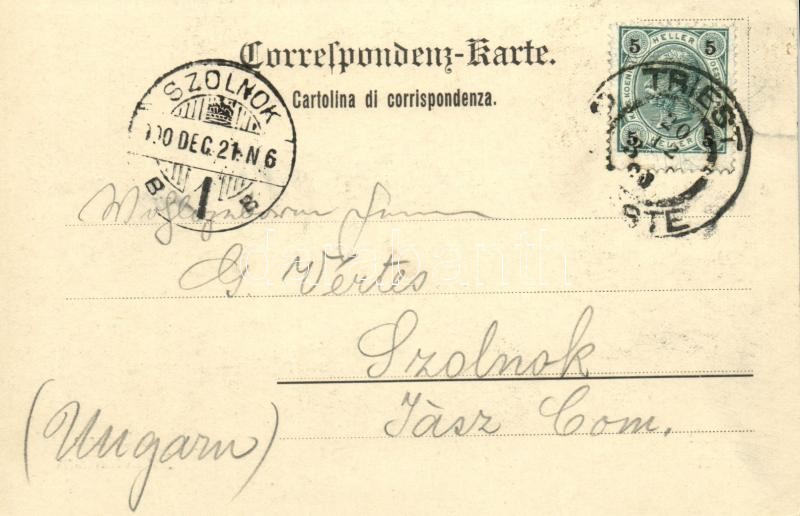 Correspondenz-Karte.
Cartolina di corrispondenza.
SZOLNOK
900 DEC. 21. N 6
B 1 B
5 HELLER 5
5 HELLER 5
TRIEST
20
12
STE
Wohlgeboren Herrn
G. Vértes
Szolnok
Jász Com.
(Ungarn)